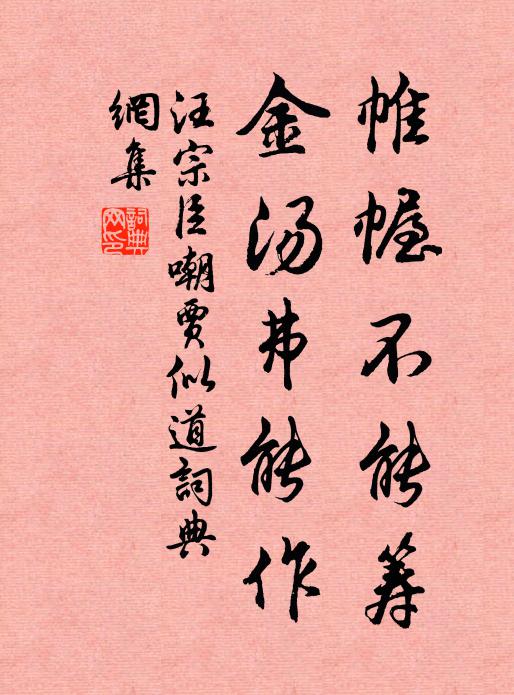 帷幄不能筹
金汤弗能作
汪宗臣嘲贾似道詞典
網集
詞典
网印